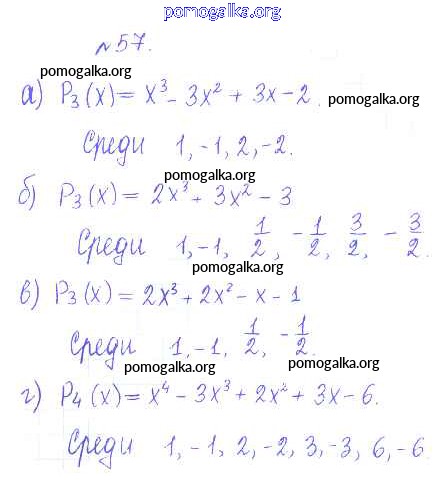 pomogalka.org
№57.
pomogalka.org
а) P₃(x) = x³ - 3x² + 3x - 2.
pomogalka.org
Среди 1, -1, 2, -2.
pomogalka.org
б) P₃(x) = 2x³ + 3x² - 3
Среди 1, -1, 1/2, -1/2, 3/2, -3/2.
pomogalka.org
в) P₃(x) = 2x³ + 2x² - x - 1
Среди 1, -1, 1/2, -1/2.
pomogalka.org
pomogalka.org
г) P₄(x) = x⁴ - 3x³ + 2x² + 3x - 6.
pomogalka.org
Среди 1, -1, 2, -2, 3, -3, 6, -6